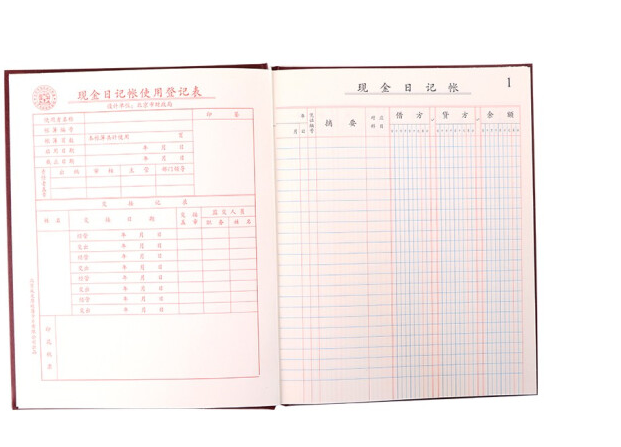 现金日记帐使用登记表
设计单位：北京市财政局
使用者名称
印 鉴
帐簿编号
帐簿页数 本帐簿共计使用 页
启用日期 年 月 日
截止日期 年 月 日
主管
部门领导
交 接 记 录
姓名 交 接 日 期 监交人员
职务 姓名
经管 年 月 日
交出 年 月 日
经管 年 月 日
交出 年 月 日
经管 年 月 日
交出 年 月 日
经管 年 月 日
交出 年 月 日
印花税票
现 金 日 记 帐
1
年 凭证编号 摘 要 对应科目 借 方 √ 贷 方 √ 余 额
月 日